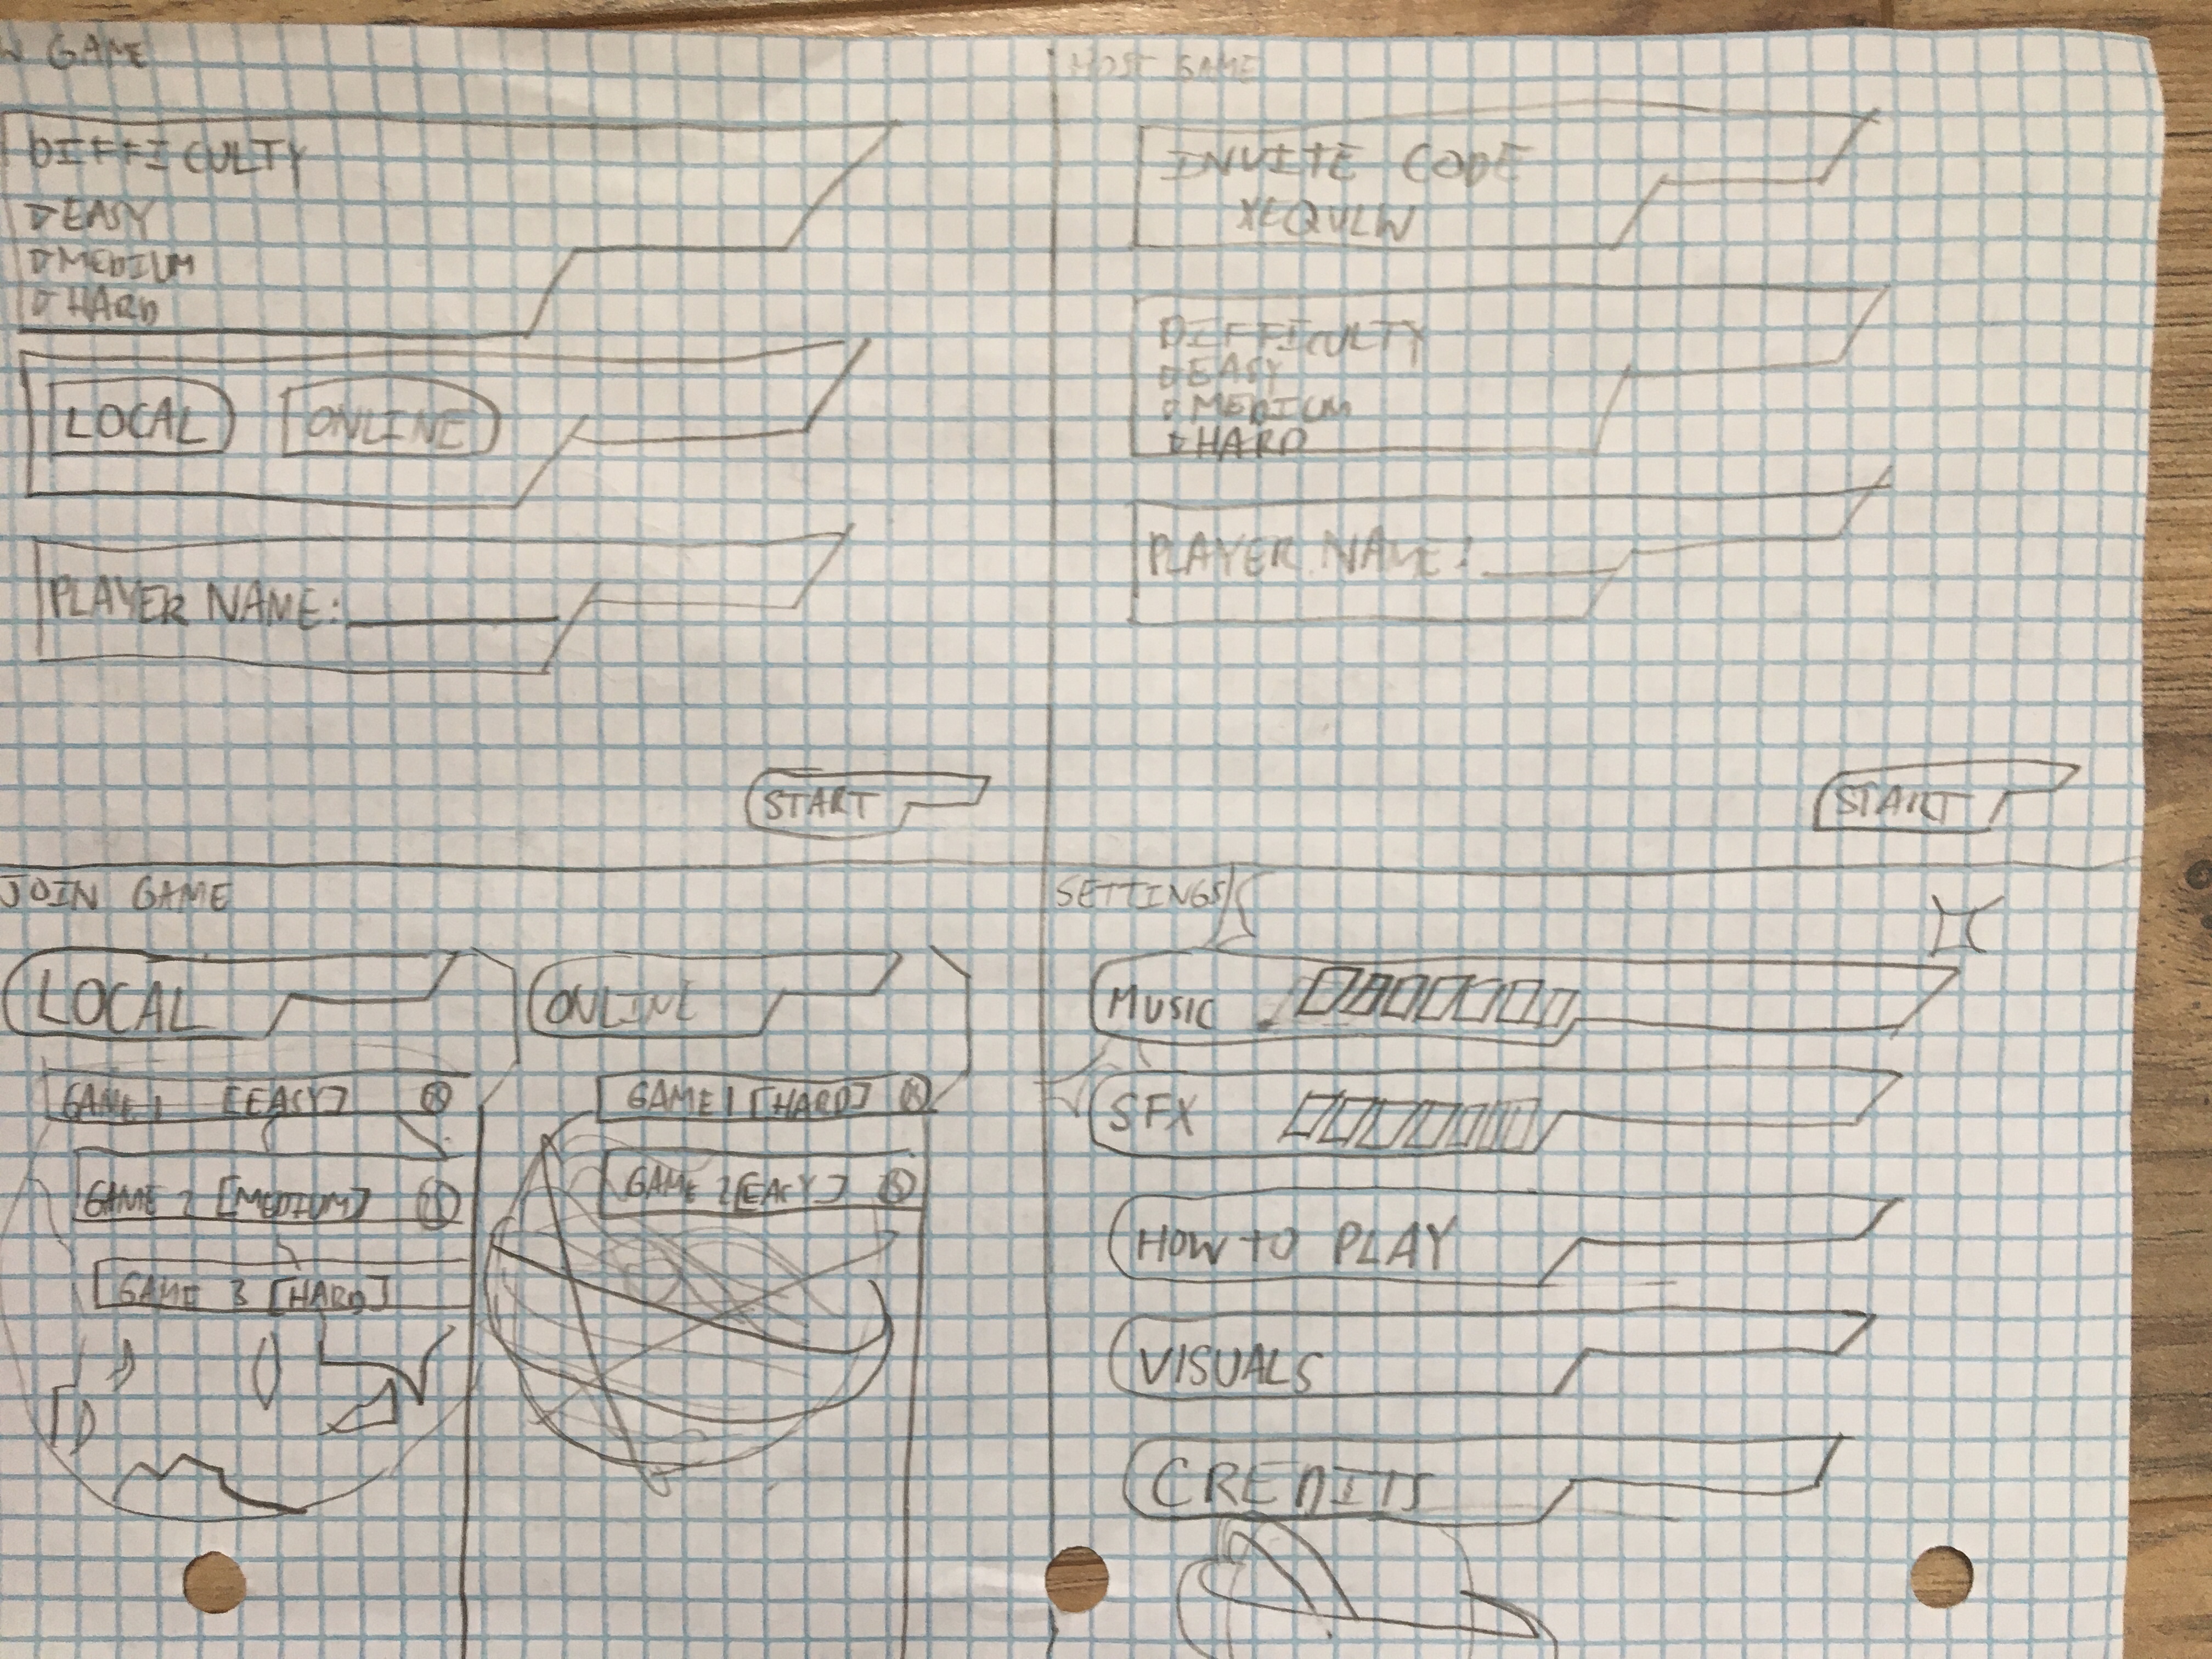 W GAME
DIFFICULTY
EASY
MEDIUM
HARD
LOCAL
ONLINE
PLAYER NAME:
START
HOST GAME
INVITE CODE
DIFFICULTY
EASY
MEDIUM
HARD
PLAYER NAME:
START
JOIN GAME
LOCAL
GAME 1 [EASY]
GAME 2 [MEDIUM]
GAME 3 [HARD]
ONLINE
GAME 1 [HARD]
GAME 2 [EASY]
SETTINGS
MUSIC
SFX
HOW TO PLAY
VISUALS
CREDITS